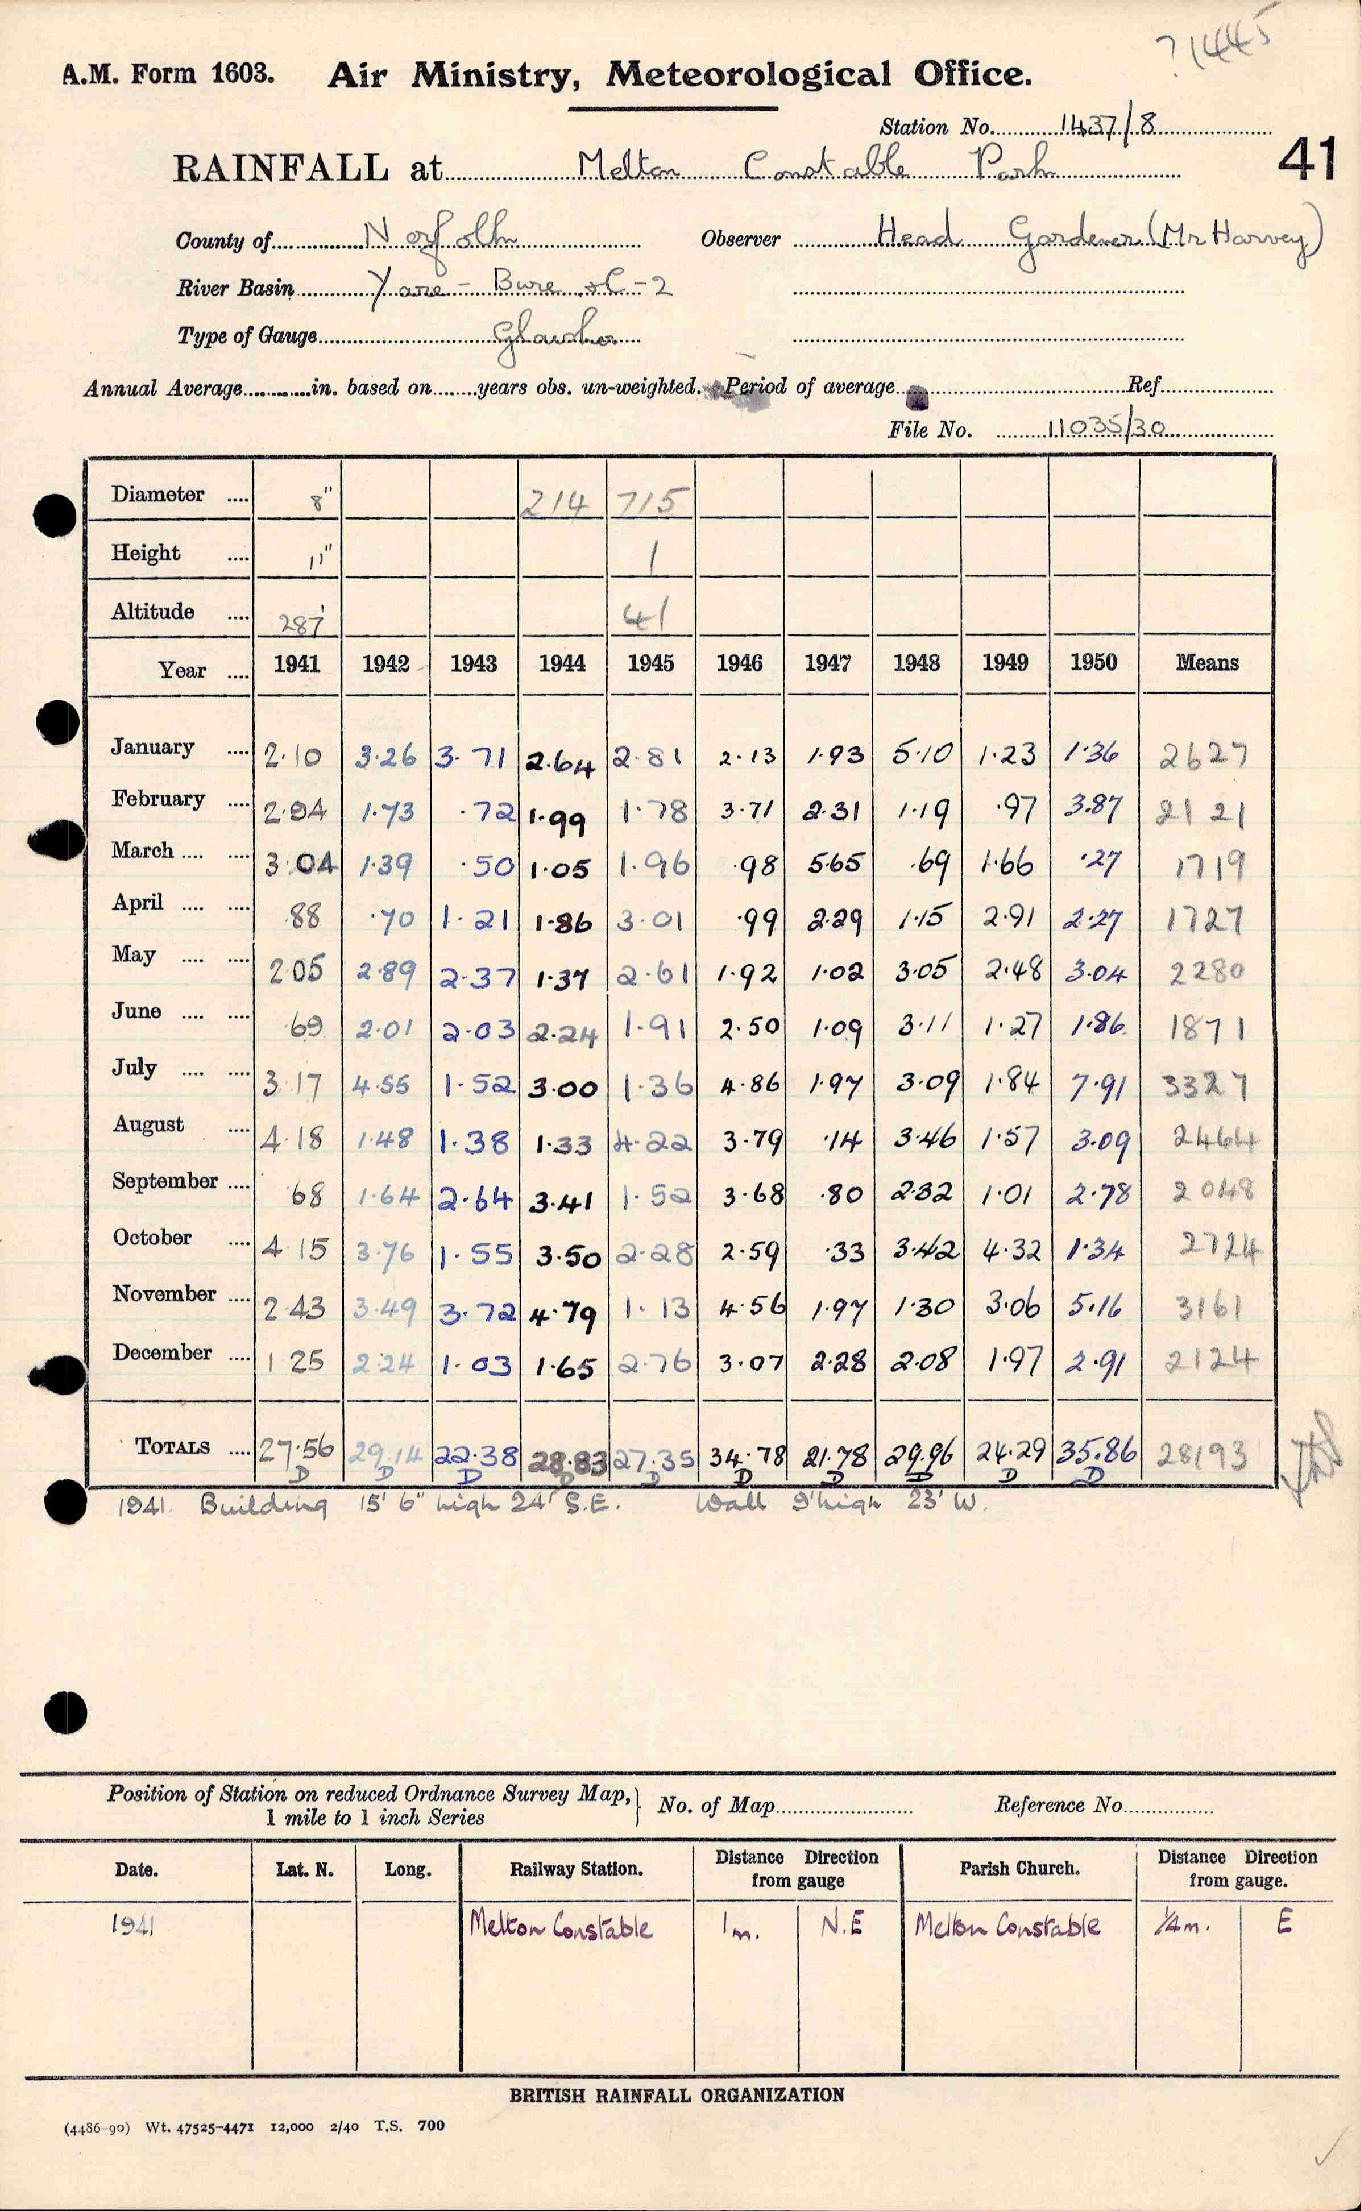 ? 1445
A.M. Form 1603. Air Ministry, Meteorological Office.
Station No. 1437/8
41
RAINFALL at Melton Constable Park
County of Norfolk Observer Head Gardener (Mr Harvey)
River Basin Yare - Bure &C - 2
Type of Gauge Glaisher
Annual Average in. based on years obs. un-weighted. Period of average Ref
File No. 11035/30
Diameter 8" 214 715
Height 11" 1
Altitude 287' 41
Year 1941 1942 1943 1944 1945 1946 1947 1948 1949 1950 Means
January 2.10 3.26 3.71 2.64 2.81 2.13 1.93 5.10 1.23 1.36 2627
February 2.94 1.73 .72 1.99 1.78 3.71 2.31 1.19 .97 3.87 2121
March 3.04 1.39 .50 1.05 1.96 .98 5.65 .69 1.66 .27 1719
April .88 .70 1.21 1.86 3.01 .99 2.29 1.15 2.91 2.27 1727
May 2.05 2.89 2.37 1.37 2.61 1.92 1.02 3.05 2.48 3.04 2280
June .69 2.01 2.03 2.24 1.91 2.50 1.09 3.11 1.27 1.86 1871
July 3.17 4.55 1.52 3.00 1.36 4.86 1.97 3.09 1.84 7.91 3327
August 4.18 1.48 1.38 1.33 4.22 3.79 .14 3.46 1.57 3.09 2464
September 68 1.64 2.64 3.41 1.52 3.68 .80 2.32 1.01 2.78 2048
October 4.15 3.76 1.55 3.50 2.28 2.59 .33 3.42 4.32 1.34 2724
November 2.43 3.49 3.72 4.79 1.13 4.56 1.97 1.30 3.06 5.16 3161
December 1.25 2.24 1.03 1.65 2.76 3.07 2.28 2.08 1.97 2.91 2124
TOTALS 27.56 29.14 22.38 28.83 27.35 34.78 21.78 29.96 24.29 35.86 28193
D D D D D D D D D D
1941 Building 15' 6" high 24' S.E. Wall 9' high 23' W.
Position of Station on reduced Ordnance Survey Map, 1 mile to 1 inch Series No. of Map Reference No
Date. Lat. N. Long. Railway Station. Distance Direction from gauge Parish Church. Distance Direction from gauge.
1941 Melton Constable 1 m. N.E Melton Constable 1/4 m. E
BRITISH RAINFALL ORGANIZATION
(4486-90) Wt. 47525-4471 12,000 2/40 T.S. 700